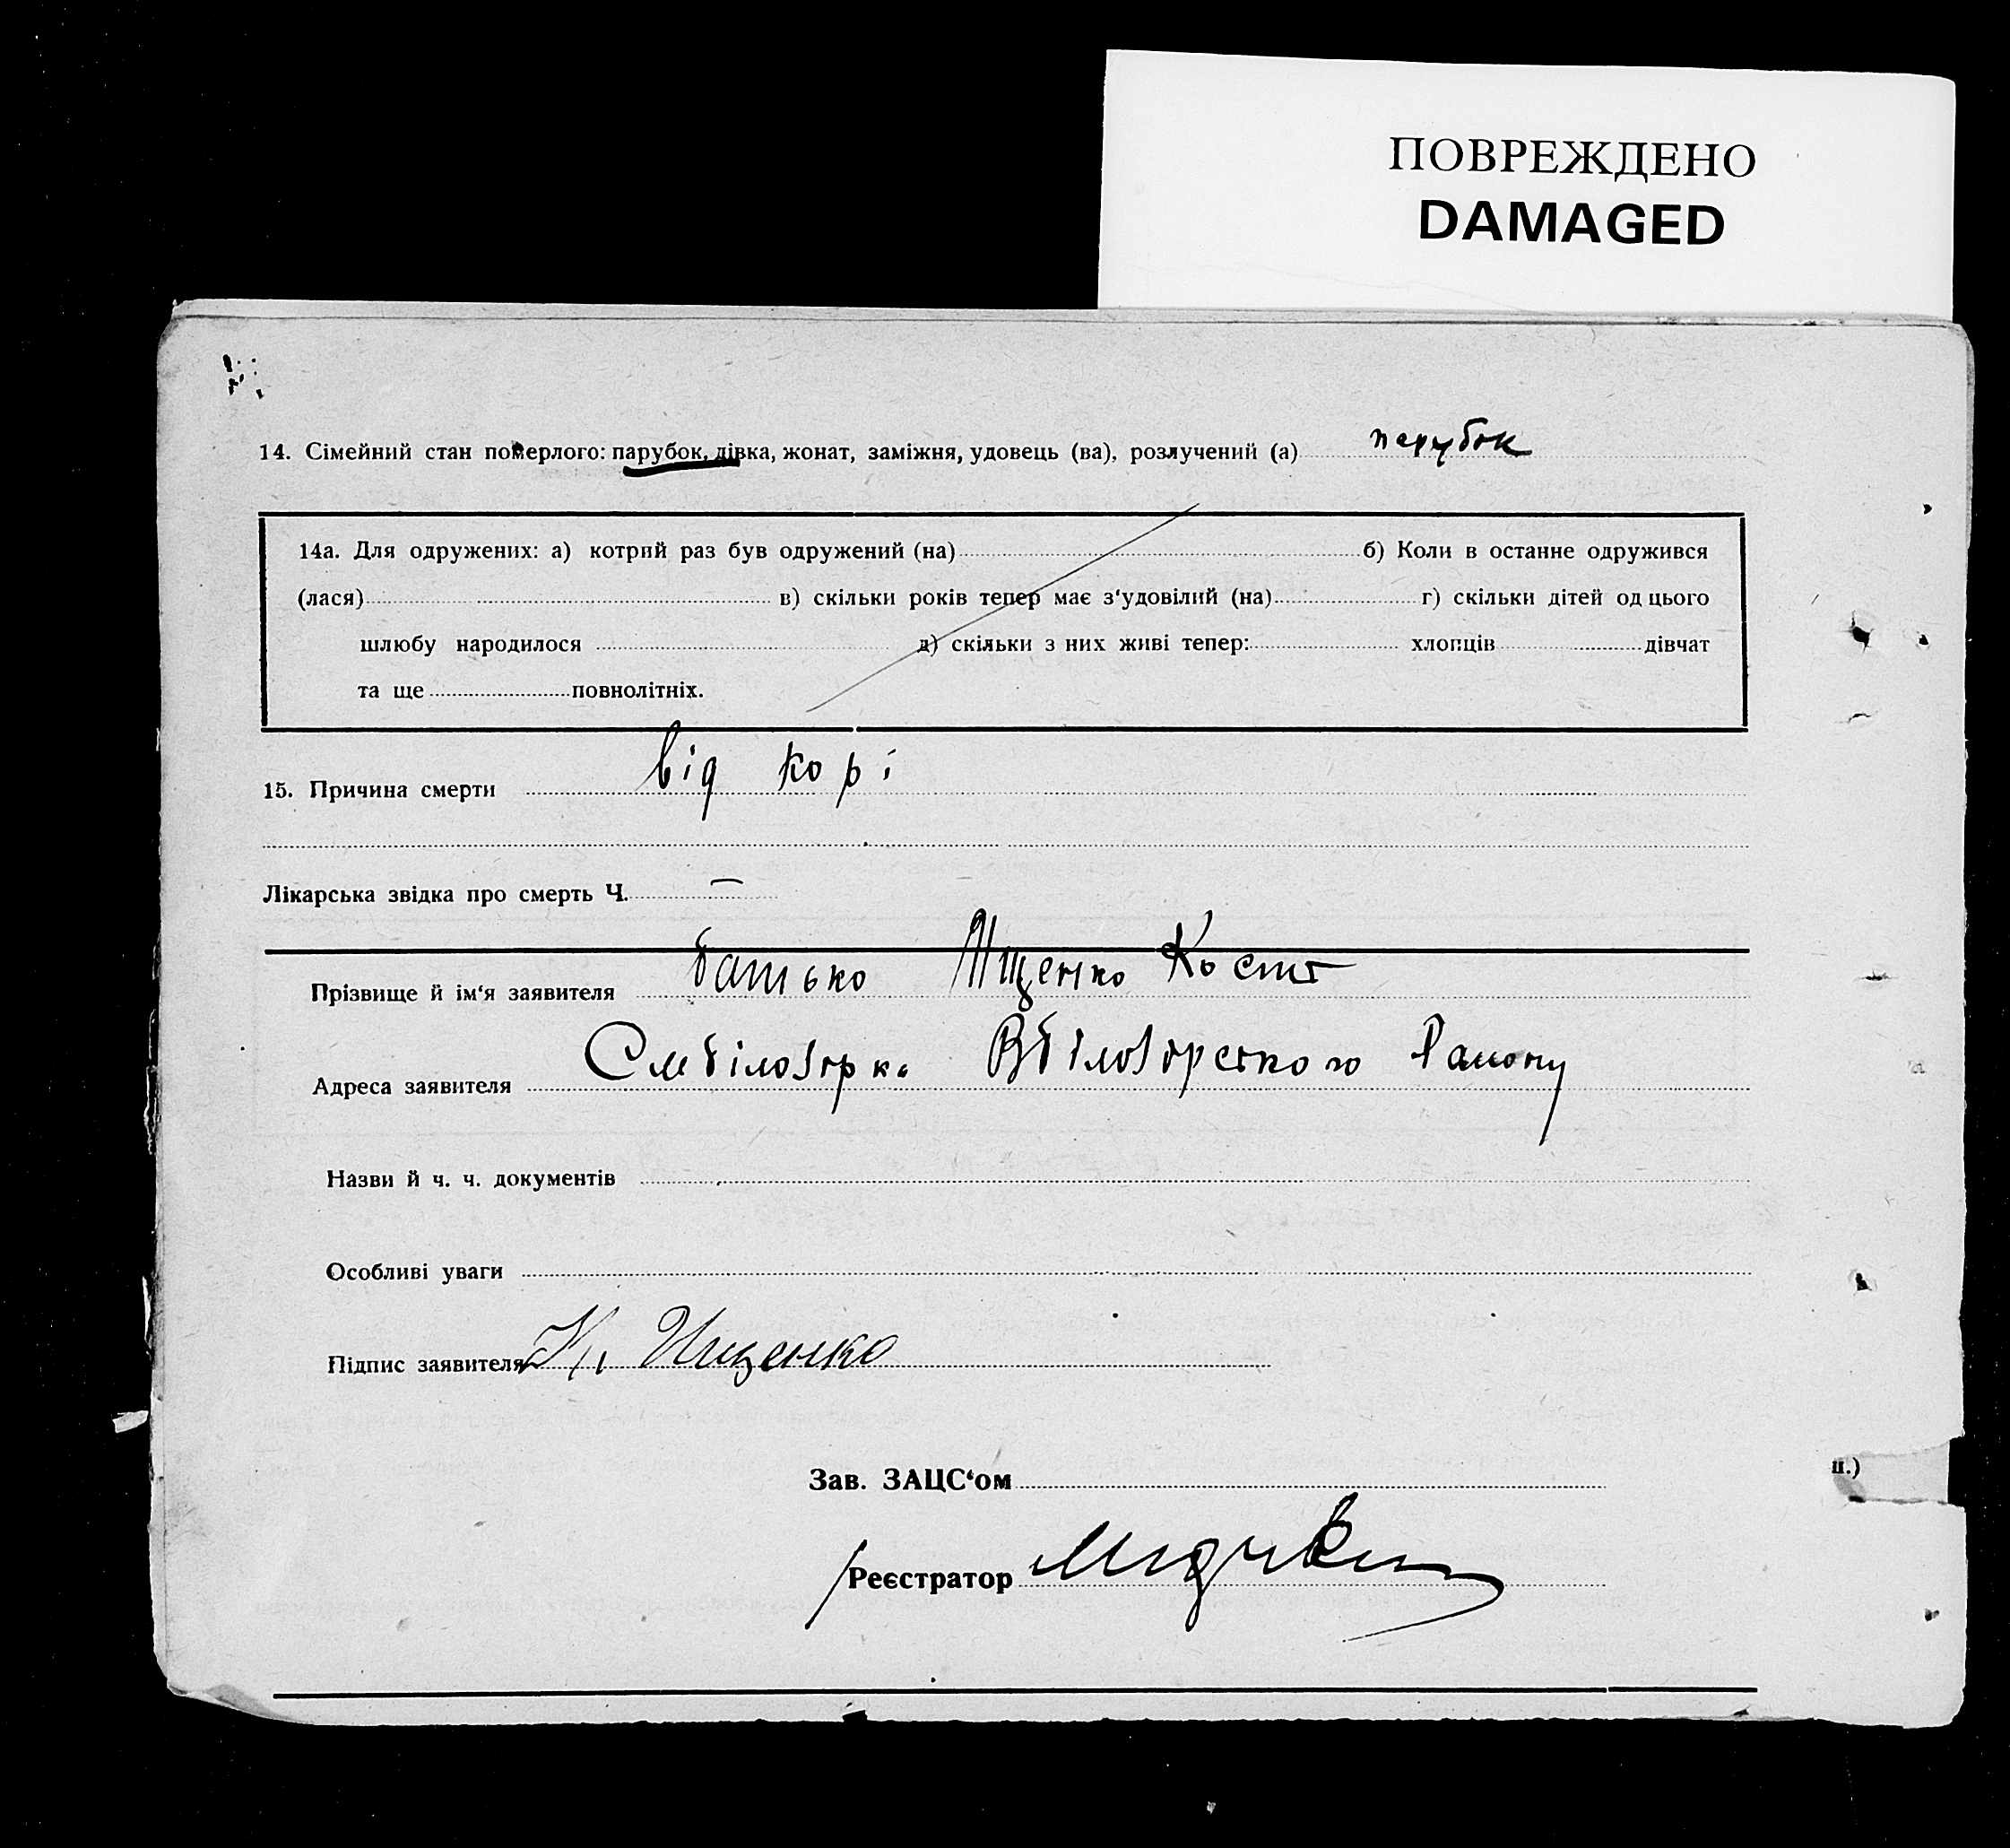 ПОВРЕЖДЕНО
DAMAGED
14. Сімейний стан померлого: парубок, дівка, жонат, заміжня, удовець (ва), розлучений (а) парубок
14а. Для одружених: а) котрий раз був одружений (на) б) Коли в останне одружився
(лася) в) скільки років тепер має з‘удовілий (на) г) скільки дітей од цього
шлюбу народилося д) скільки з них живі тепер: хлопців дівчат
та ще повнолітніх.
15. Причина смерти від корі
Лікарська звідка про смерть Ч. —
Прізвище й ім‘я заявителя батько Іщенко Кость
Адреса заявителя Білозорка Вбілозорського Району
Назви й ч. ч. документів
Особливі уваги
Підпис заявителя К. Ищенко
Зав. ЗАЦС‘ом
ц.)
Реєстратор